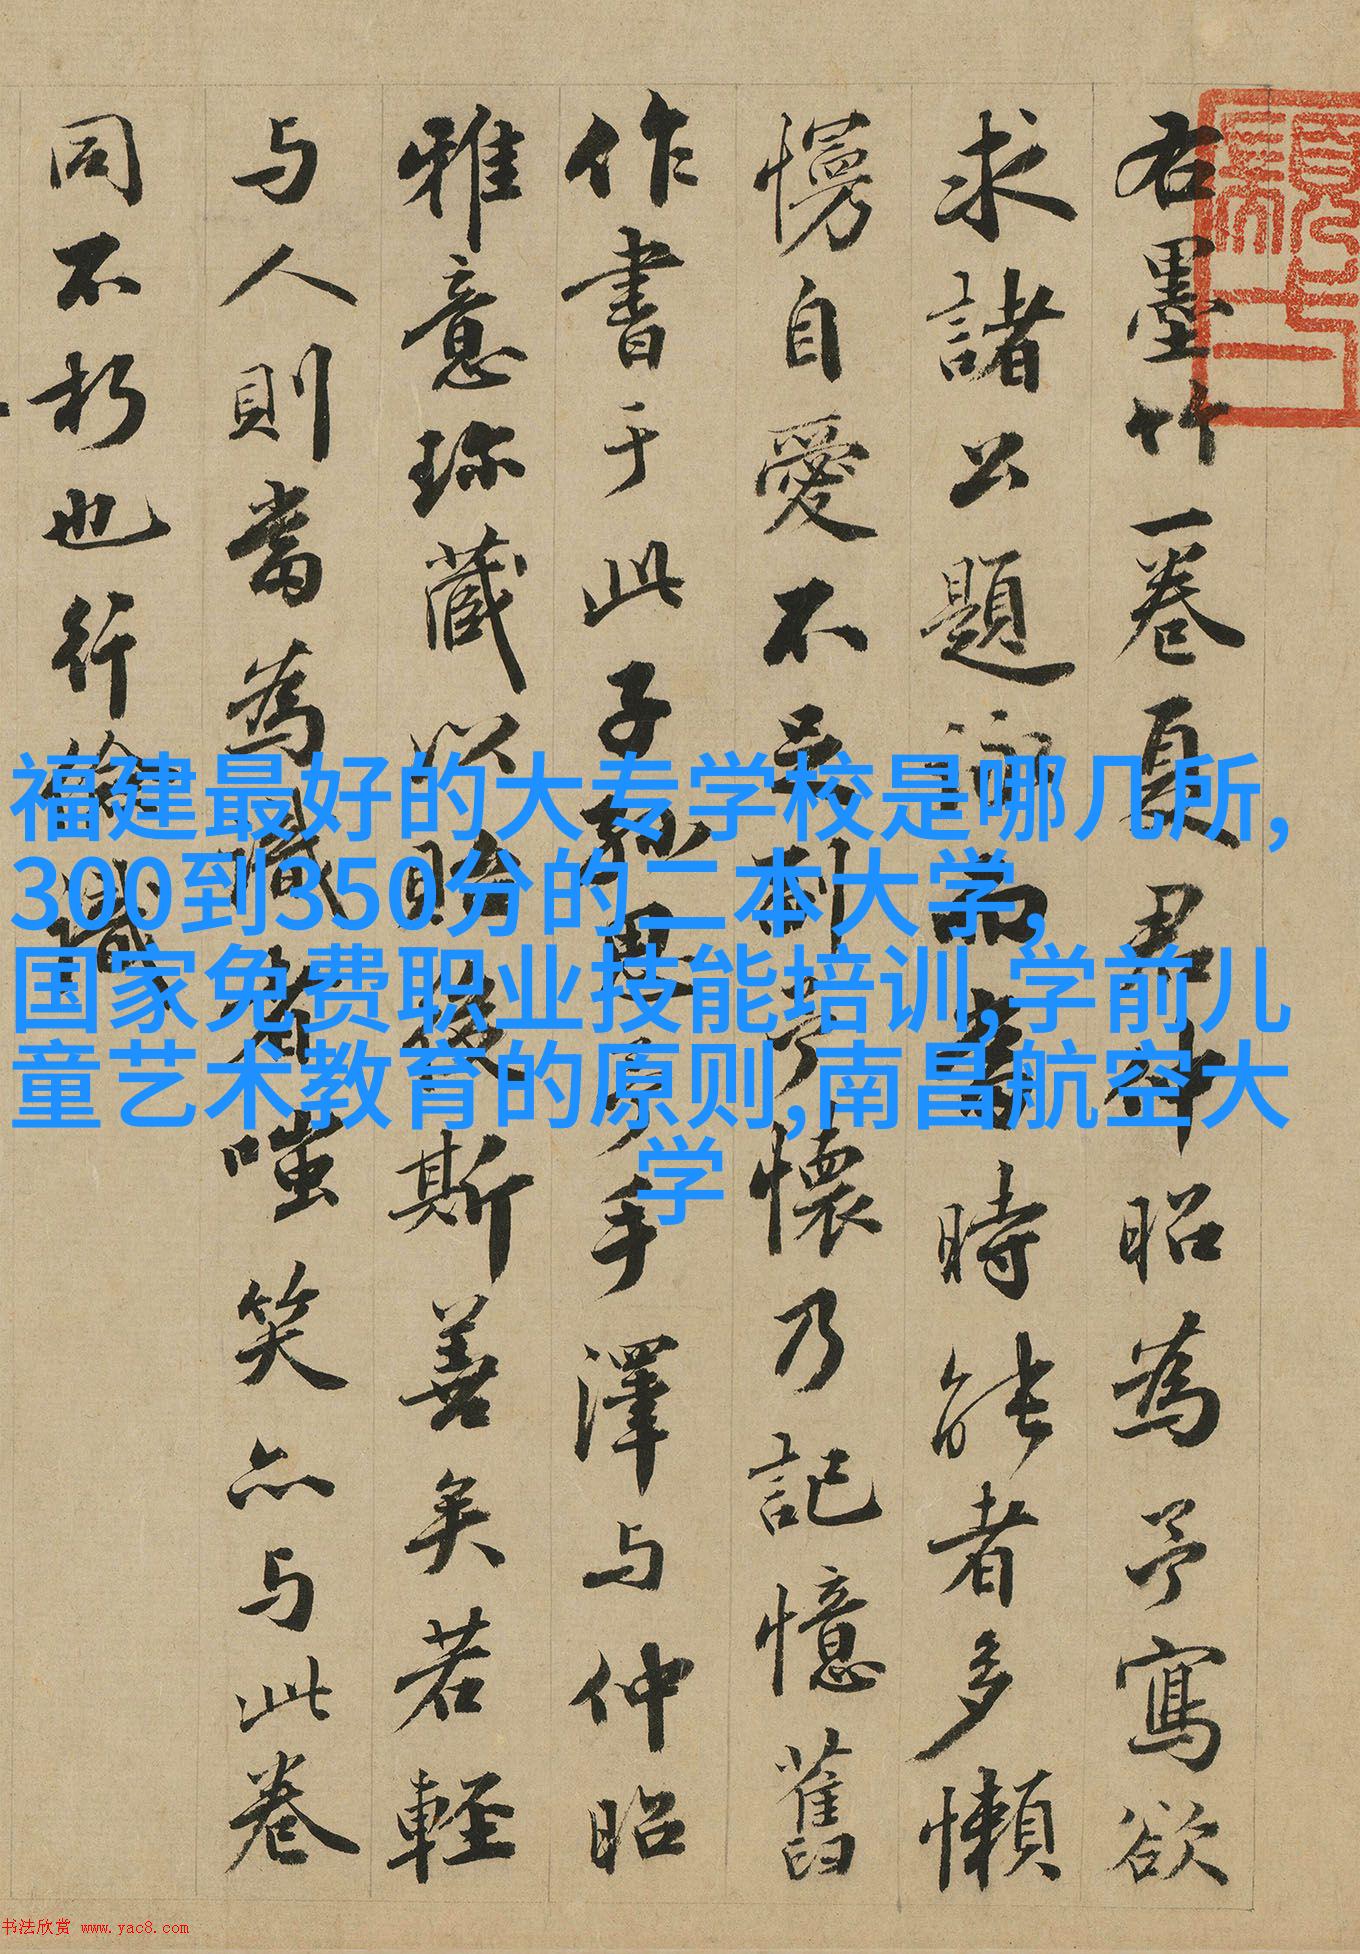 右墨竹一卷夏君仲昭為予寫欲
求諸公題詠而書時能者多懶
慢自愛不懷乃記憶舊
作書于此子孫思予手澤与仲昭
雅意珎藏以貽後斯善矣若輕
与人則當為識者嗤笑亦与此卷
同不朽也行儉識
福建最好的大专学校是哪几所,
300到350分的二本大学,
国家免费职业技能培训,学前儿
童艺术教育的原则,南昌航空大
学
书法欣赏 www.yac8.com